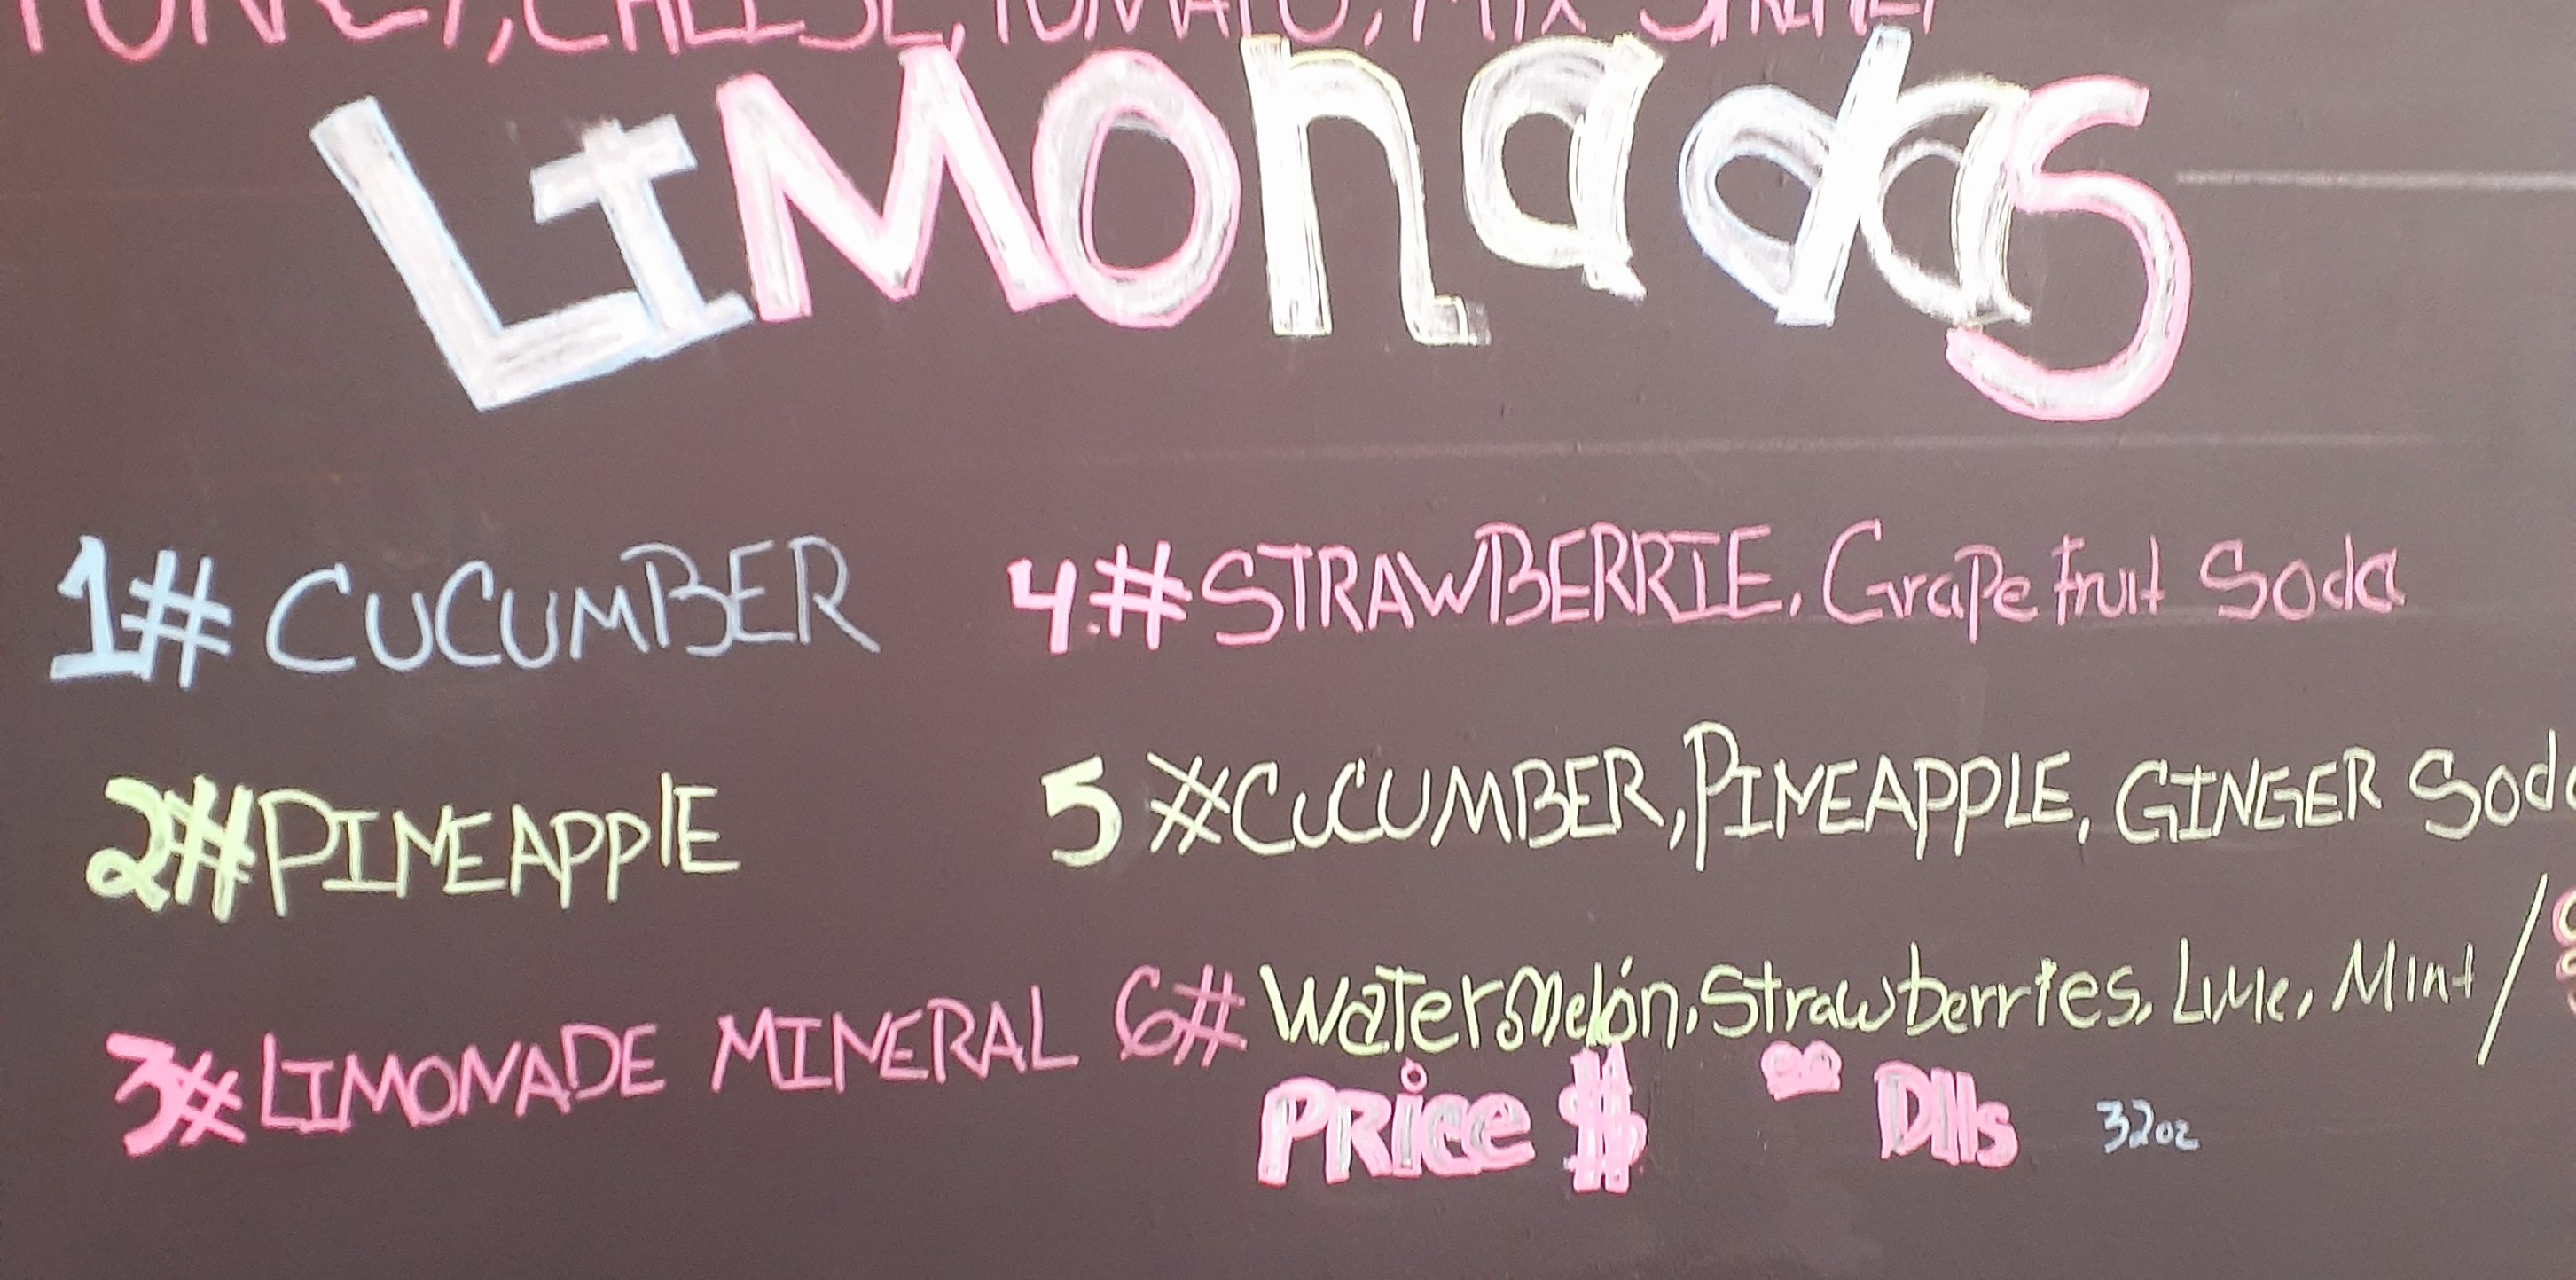 TURKEY, CHEESE, TOMATO, MIX
LIMOnadas
1# CUCUMBER
2# PINEAPPlE
3# LIMONADE MINERAL
4# STRAWBERRIE, GraPe Fruit Soda
5 # CUCUMBER, PINEAPPLE, GINGER Soda
6# WaterMelón, Strawberries, Lime, Mint /
PRice $ 00 Dlls 32oz